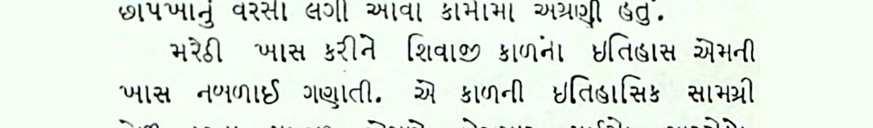 છાપખાનું વરસો લગી આવા કામોમાં અગ્રણી હતું.
મરેઠી ખાસ કરીને શિવાજી કાળનો ઇતિહાસ એમની
ખાસ નબળાઈ ગણાતી. એ કાળની ઇતિહાસિક સામગ્રી